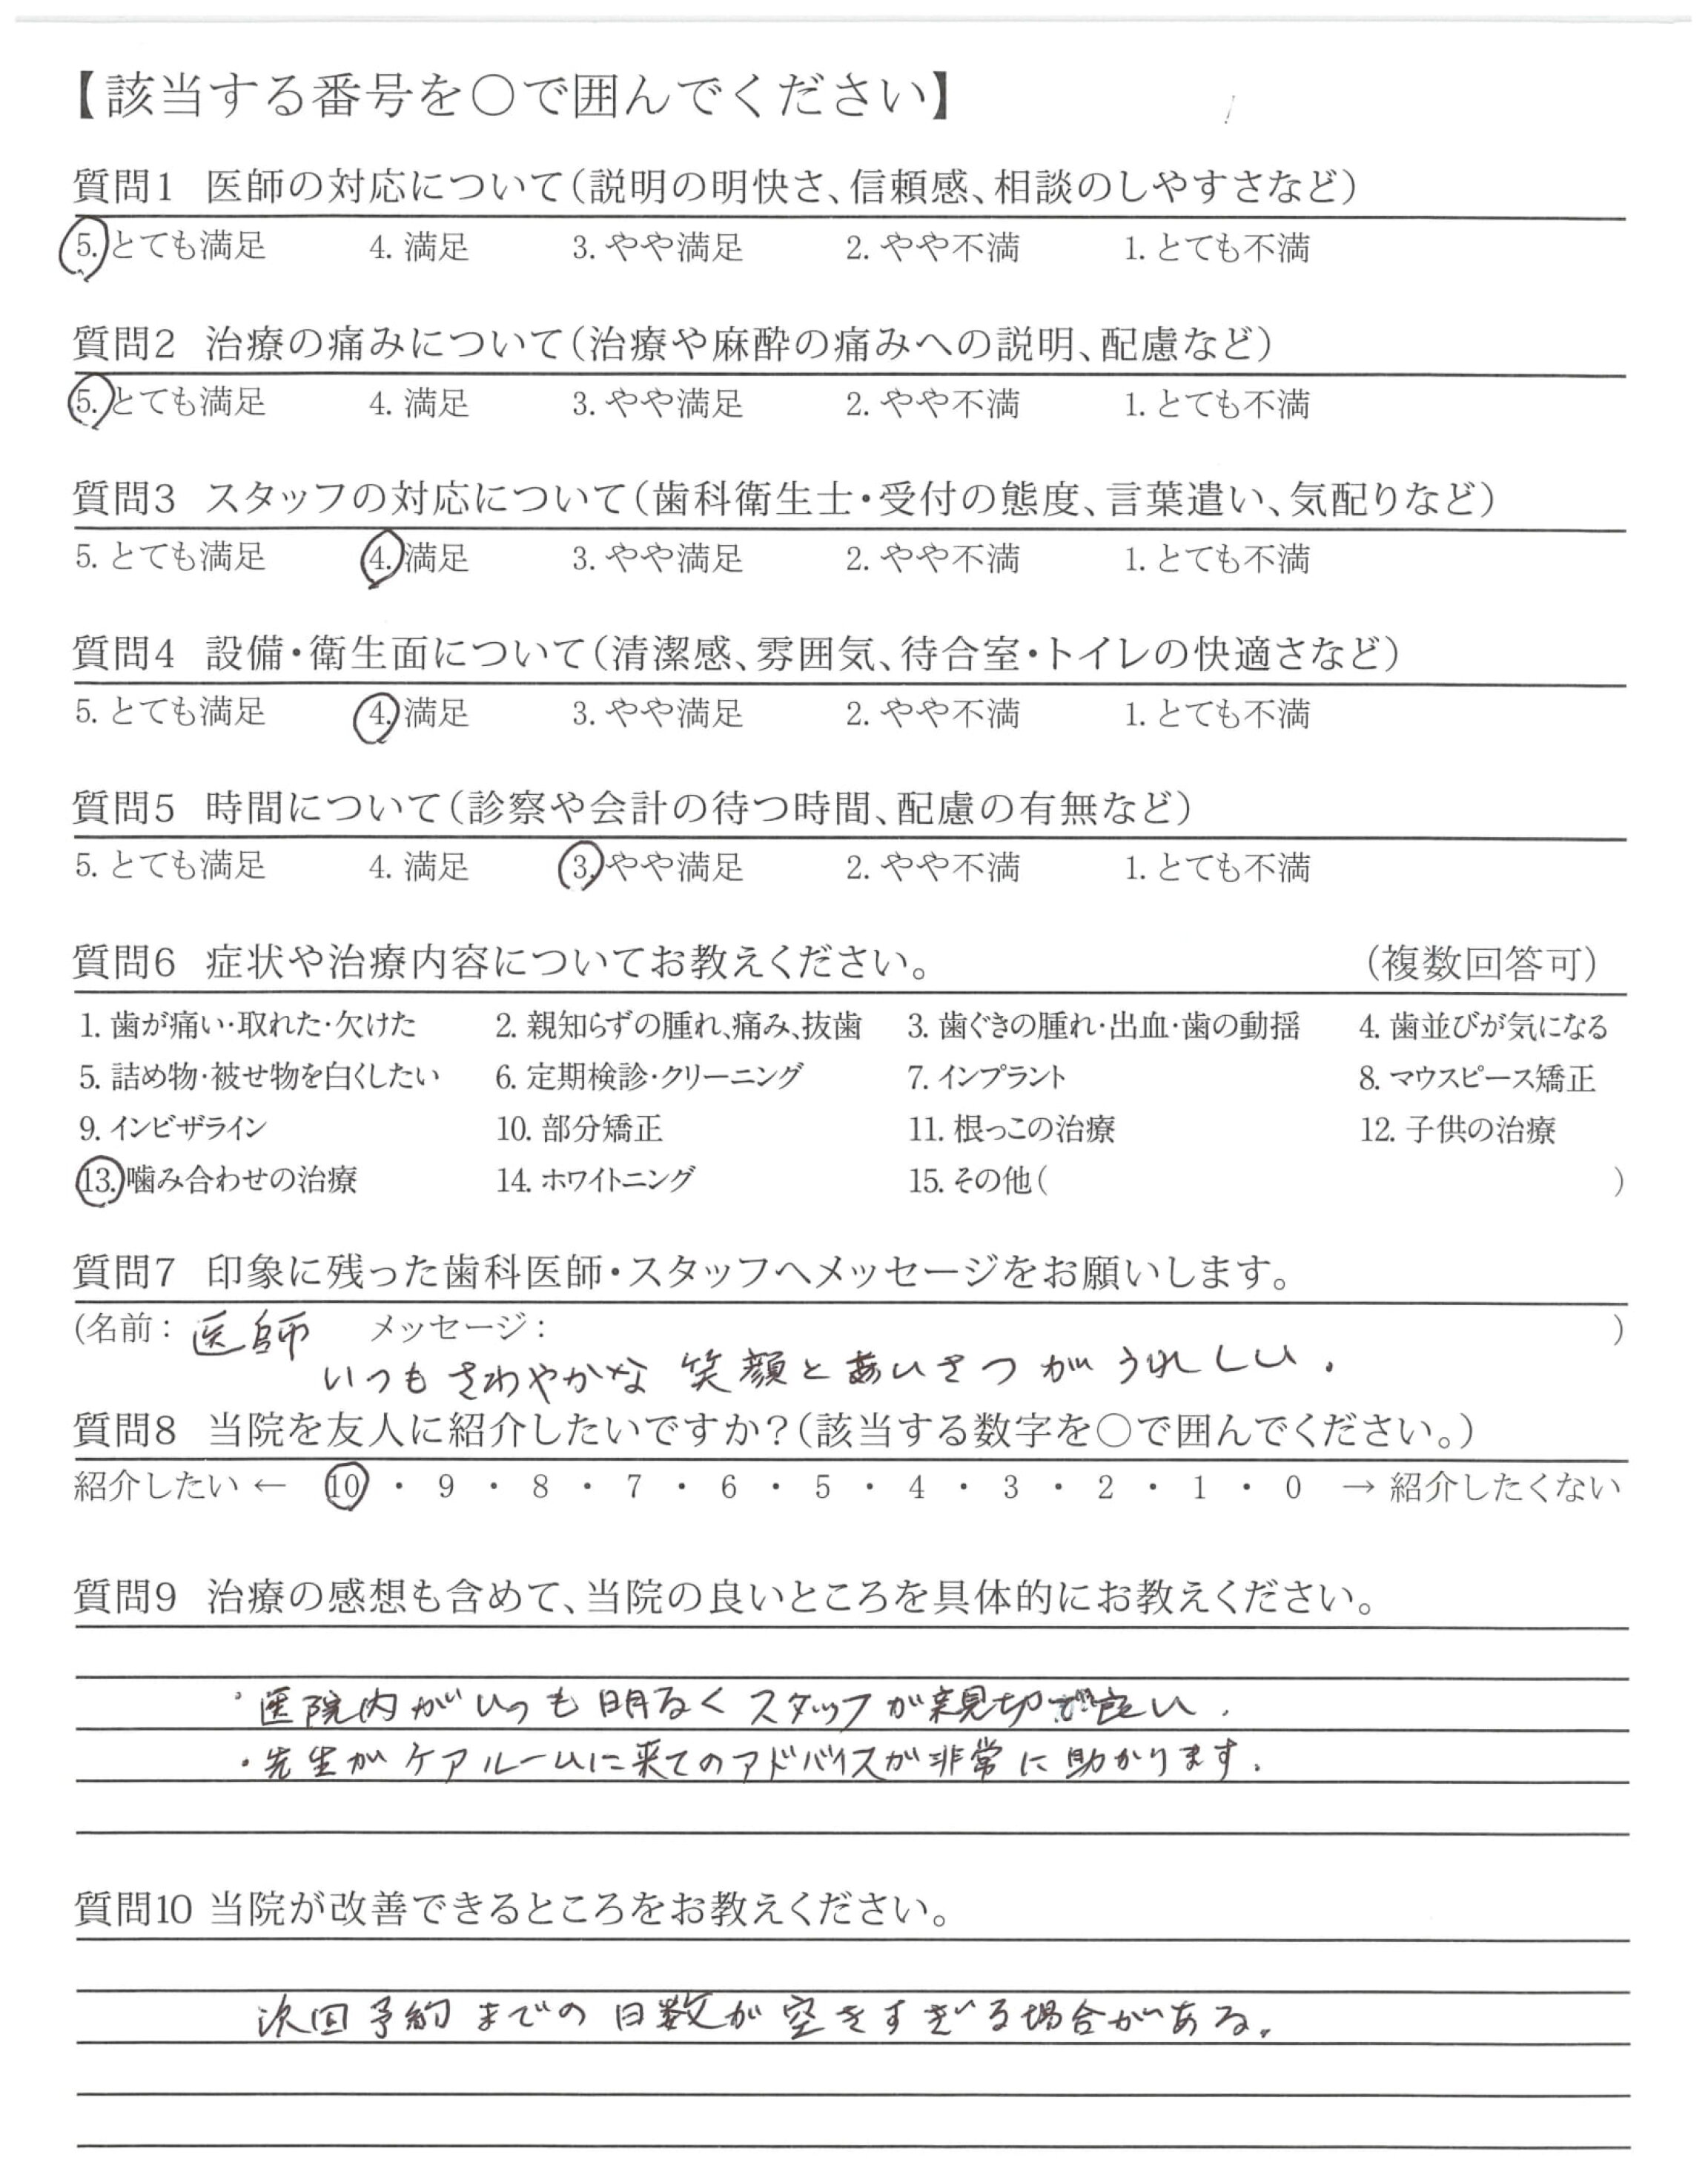 【該当する番号を○で囲んでください】
質問1 医師の対応について(説明の明快さ、信頼感、相談のしやすさなど)
5. とても満足 4. 満足 3. やや満足 2. やや不満 1. とても不満
質問2 治療の痛みについて(治療や麻酔の痛みへの説明、配慮など)
5. とても満足 4. 満足 3. やや満足 2. やや不満 1. とても不満
質問3 スタッフの対応について(歯科衛生士・受付の態度、言葉遣い、気配りなど)
5. とても満足 4. 満足 3. やや満足 2. やや不満 1. とても不満
質問4 設備・衛生面について(清潔感、雰囲気、待合室・トイレの快適さなど)
5. とても満足 4. 満足 3. やや満足 2. やや不満 1. とても不満
質問5 時間について(診察や会計の待つ時間、配慮の有無など)
5. とても満足 4. 満足 3. やや満足 2. やや不満 1. とても不満
質問6 症状や治療内容についてお教えください。 (複数回答可)
1. 歯が痛い・取れた・欠けた 2. 親知らずの腫れ、痛み、抜歯 3. 歯ぐきの腫れ・出血・歯の動揺 4. 歯並びが気になる
5. 詰め物・被せ物を白くしたい 6. 定期検診・クリーニング 7. インプラント 8. マウスピース矯正
9. インビザライン 10. 部分矯正 11. 根っこの治療 12. 子供の治療
13. 噛み合わせの治療 14. ホワイトニング 15. その他( )
質問7 印象に残った歯科医師・スタッフへメッセージをお願いします。
(名前: 医師 メッセージ: )
いつもさわやかな笑顔とあいさつがうれしい.
質問8 当院を友人に紹介したいですか?(該当する数字を○で囲んでください。)
紹介したい ← 10 ・ 9 ・ 8 ・ 7 ・ 6 ・ 5 ・ 4 ・ 3 ・ 2 ・ 1 ・ 0 → 紹介したくない
質問9 治療の感想も含めて、当院の良いところを具体的にお教えください。
・医院内がいつも明るくスタッフが親切で良い.
・先生がケアルームに来てのアドバイスが非常に助かります.
質問10 当院が改善できるところをお教えください。
次回予約までの日数が空きすぎる場合がある。